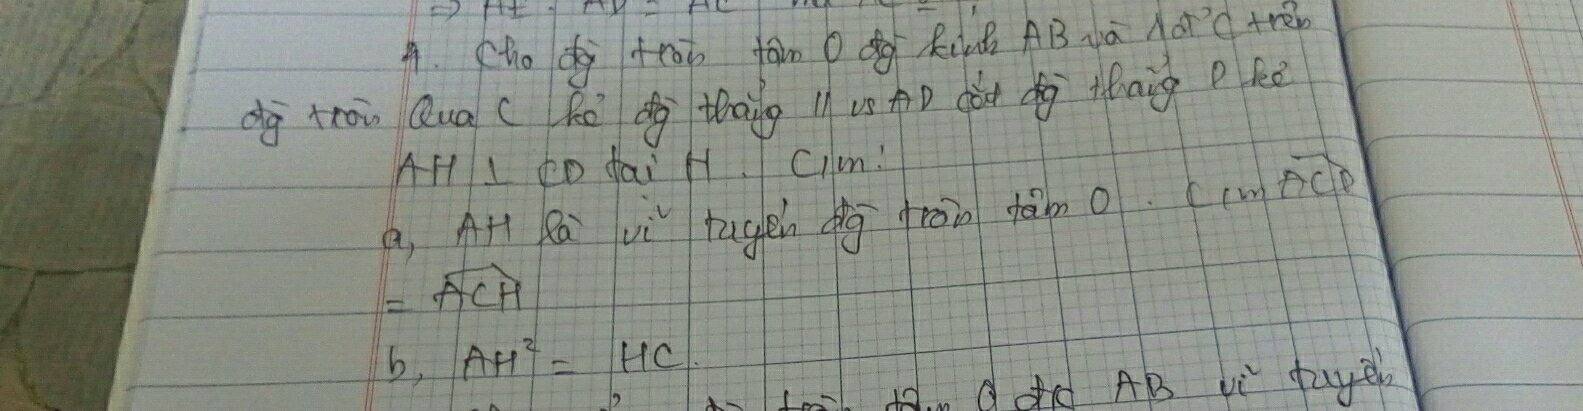 ⇒ AE . AD = AC
4. Cho đg tròn tâm O đg kính AB và 1 đ' C trên
đg tròn Qua C kẻ đg thẳng // vs AD cắt đg thẳng D kẻ
AH ⊥ CD tại H . C/m:
a, AH là vi tuyến đg tròn tâm O . C/m ACD
= ACH
b, AH² = HC.
tròn tâm O đk AB vi tuyến